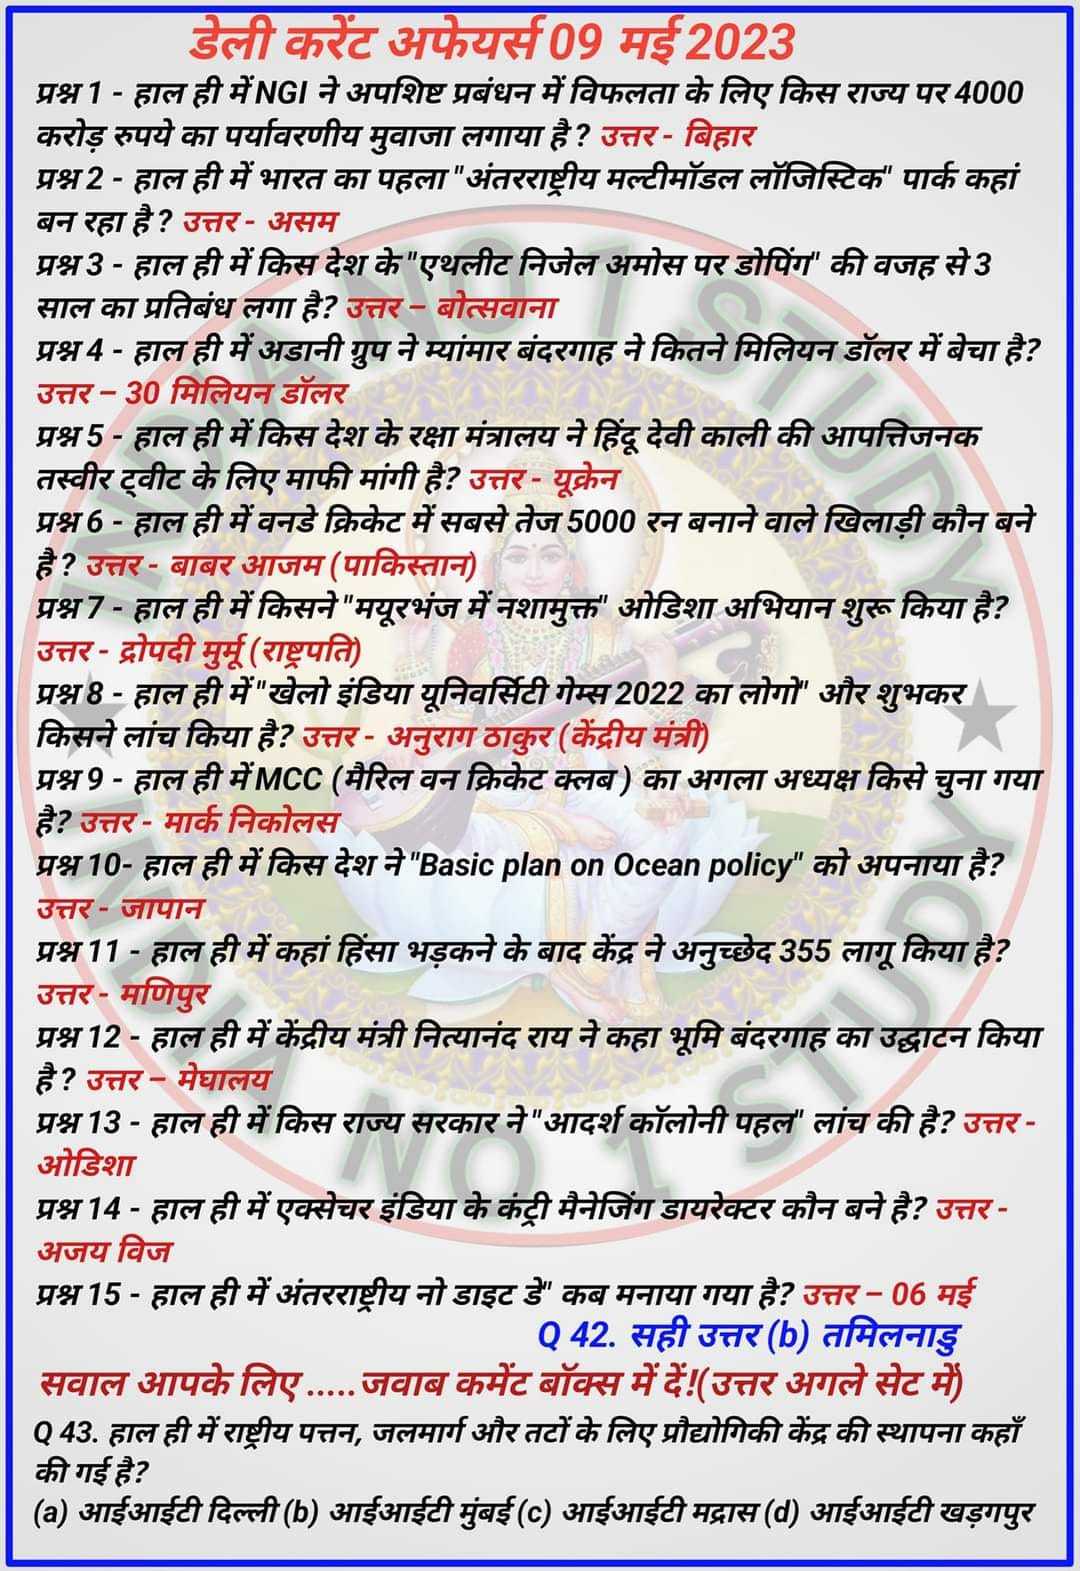 डेली करेंट अफेयर्स 09 मई 2023
प्रश्न 1 - हाल ही में NGI ने अपशिष्ट प्रबंधन में विफलता के लिए किस राज्य पर 4000
करोड़ रुपये का पर्यावरणीय मुवाजा लगाया है? उत्तर - बिहार
प्रश्न 2 - हाल ही में भारत का पहला "अंतरराष्ट्रीय मल्टीमॉडल लॉजिस्टिक" पार्क कहां
बन रहा है? उत्तर - असम
प्रश्न 3 - हाल ही में किस देश के "एथलीट निजेल अमोस पर डोपिंग" की वजह से 3
साल का प्रतिबंध लगा है? उत्तर – बोत्सवाना
प्रश्न 4 - हाल ही में अडानी ग्रुप ने म्यांमार बंदरगाह ने कितने मिलियन डॉलर में बेचा है?
उत्तर – 30 मिलियन डॉलर
प्रश्न 5 - हाल ही में किस देश के रक्षा मंत्रालय ने हिंदू देवी काली की आपत्तिजनक
तस्वीर ट्वीट के लिए माफी मांगी है? उत्तर - यूक्रेन
प्रश्न 6 - हाल ही में वनडे क्रिकेट में सबसे तेज 5000 रन बनाने वाले खिलाड़ी कौन बने
है? उत्तर - बाबर आजम (पाकिस्तान)
प्रश्न 7 - हाल ही में किसने "मयूरभंज में नशामुक्त" ओडिशा अभियान शुरू किया है?
उत्तर - द्रोपदी मुर्मू (राष्ट्रपति)
प्रश्न 8 - हाल ही में "खेलो इंडिया यूनिवर्सिटी गेम्स 2022 का लोगो" और शुभकर
किसने लांच किया है? उत्तर - अनुराग ठाकुर (केंद्रीय मंत्री)
प्रश्न 9 - हाल ही में MCC (मैरिल वन क्रिकेट क्लब) का अगला अध्यक्ष किसे चुना गया
है? उत्तर - मार्क निकोलस
प्रश्न 10- हाल ही में किस देश ने "Basic plan on Ocean policy" को अपनाया है?
उत्तर - जापान
प्रश्न 11 - हाल ही में कहां हिंसा भड़कने के बाद केंद्र ने अनुच्छेद 355 लागू किया है?
उत्तर - मणिपुर
प्रश्न 12 - हाल ही में केंद्रीय मंत्री नित्यानंद राय ने कहा भूमि बंदरगाह का उद्घाटन किया
है? उत्तर – मेघालय
प्रश्न 13 - हाल ही में किस राज्य सरकार ने "आदर्श कॉलोनी पहल" लांच की है? उत्तर -
ओडिशा
प्रश्न 14 - हाल ही में एक्सेचर इंडिया के कंट्री मैनेजिंग डायरेक्टर कौन बने है? उत्तर -
अजय विज
प्रश्न 15 - हाल ही में अंतरराष्ट्रीय नो डाइट डे" कब मनाया गया है? उत्तर – 06 मई
Q 42. सही उत्तर (b) तमिलनाडु
सवाल आपके लिए .....जवाब कमेंट बॉक्स में दें!(उत्तर अगले सेट में)
Q 43. हाल ही में राष्ट्रीय पत्तन, जलमार्ग और तटों के लिए प्रौद्योगिकी केंद्र की स्थापना कहाँ
की गई है?
(a) आईआईटी दिल्ली (b) आईआईटी मुंबई (c) आईआईटी मद्रास (d) आईआईटी खड़गपुर
INDIA NO 1 STUDY
INDIA NO 1 STUDY